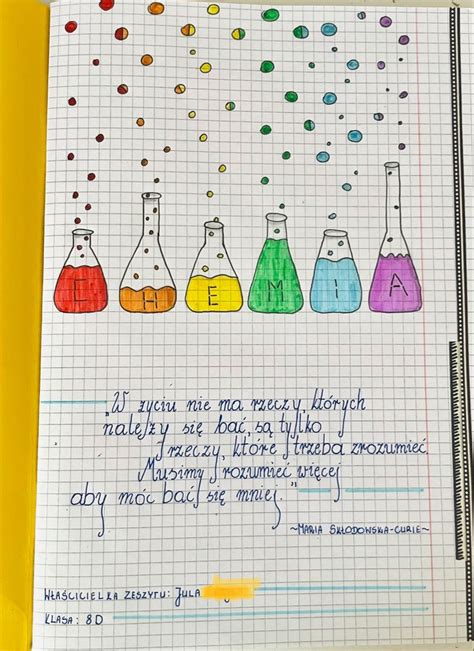 CHEMIA
„W życiu nie ma rzeczy, których
należy się bać, są tylko
rzeczy, które trzeba zrozumieć
Musimy rozumieć więcej
aby móc bać się mniej."
~MARIA SKŁODOWSKA-CURIE~
WŁAŚCICIELKA ZESZYTU: JULA
KLASA: 8D